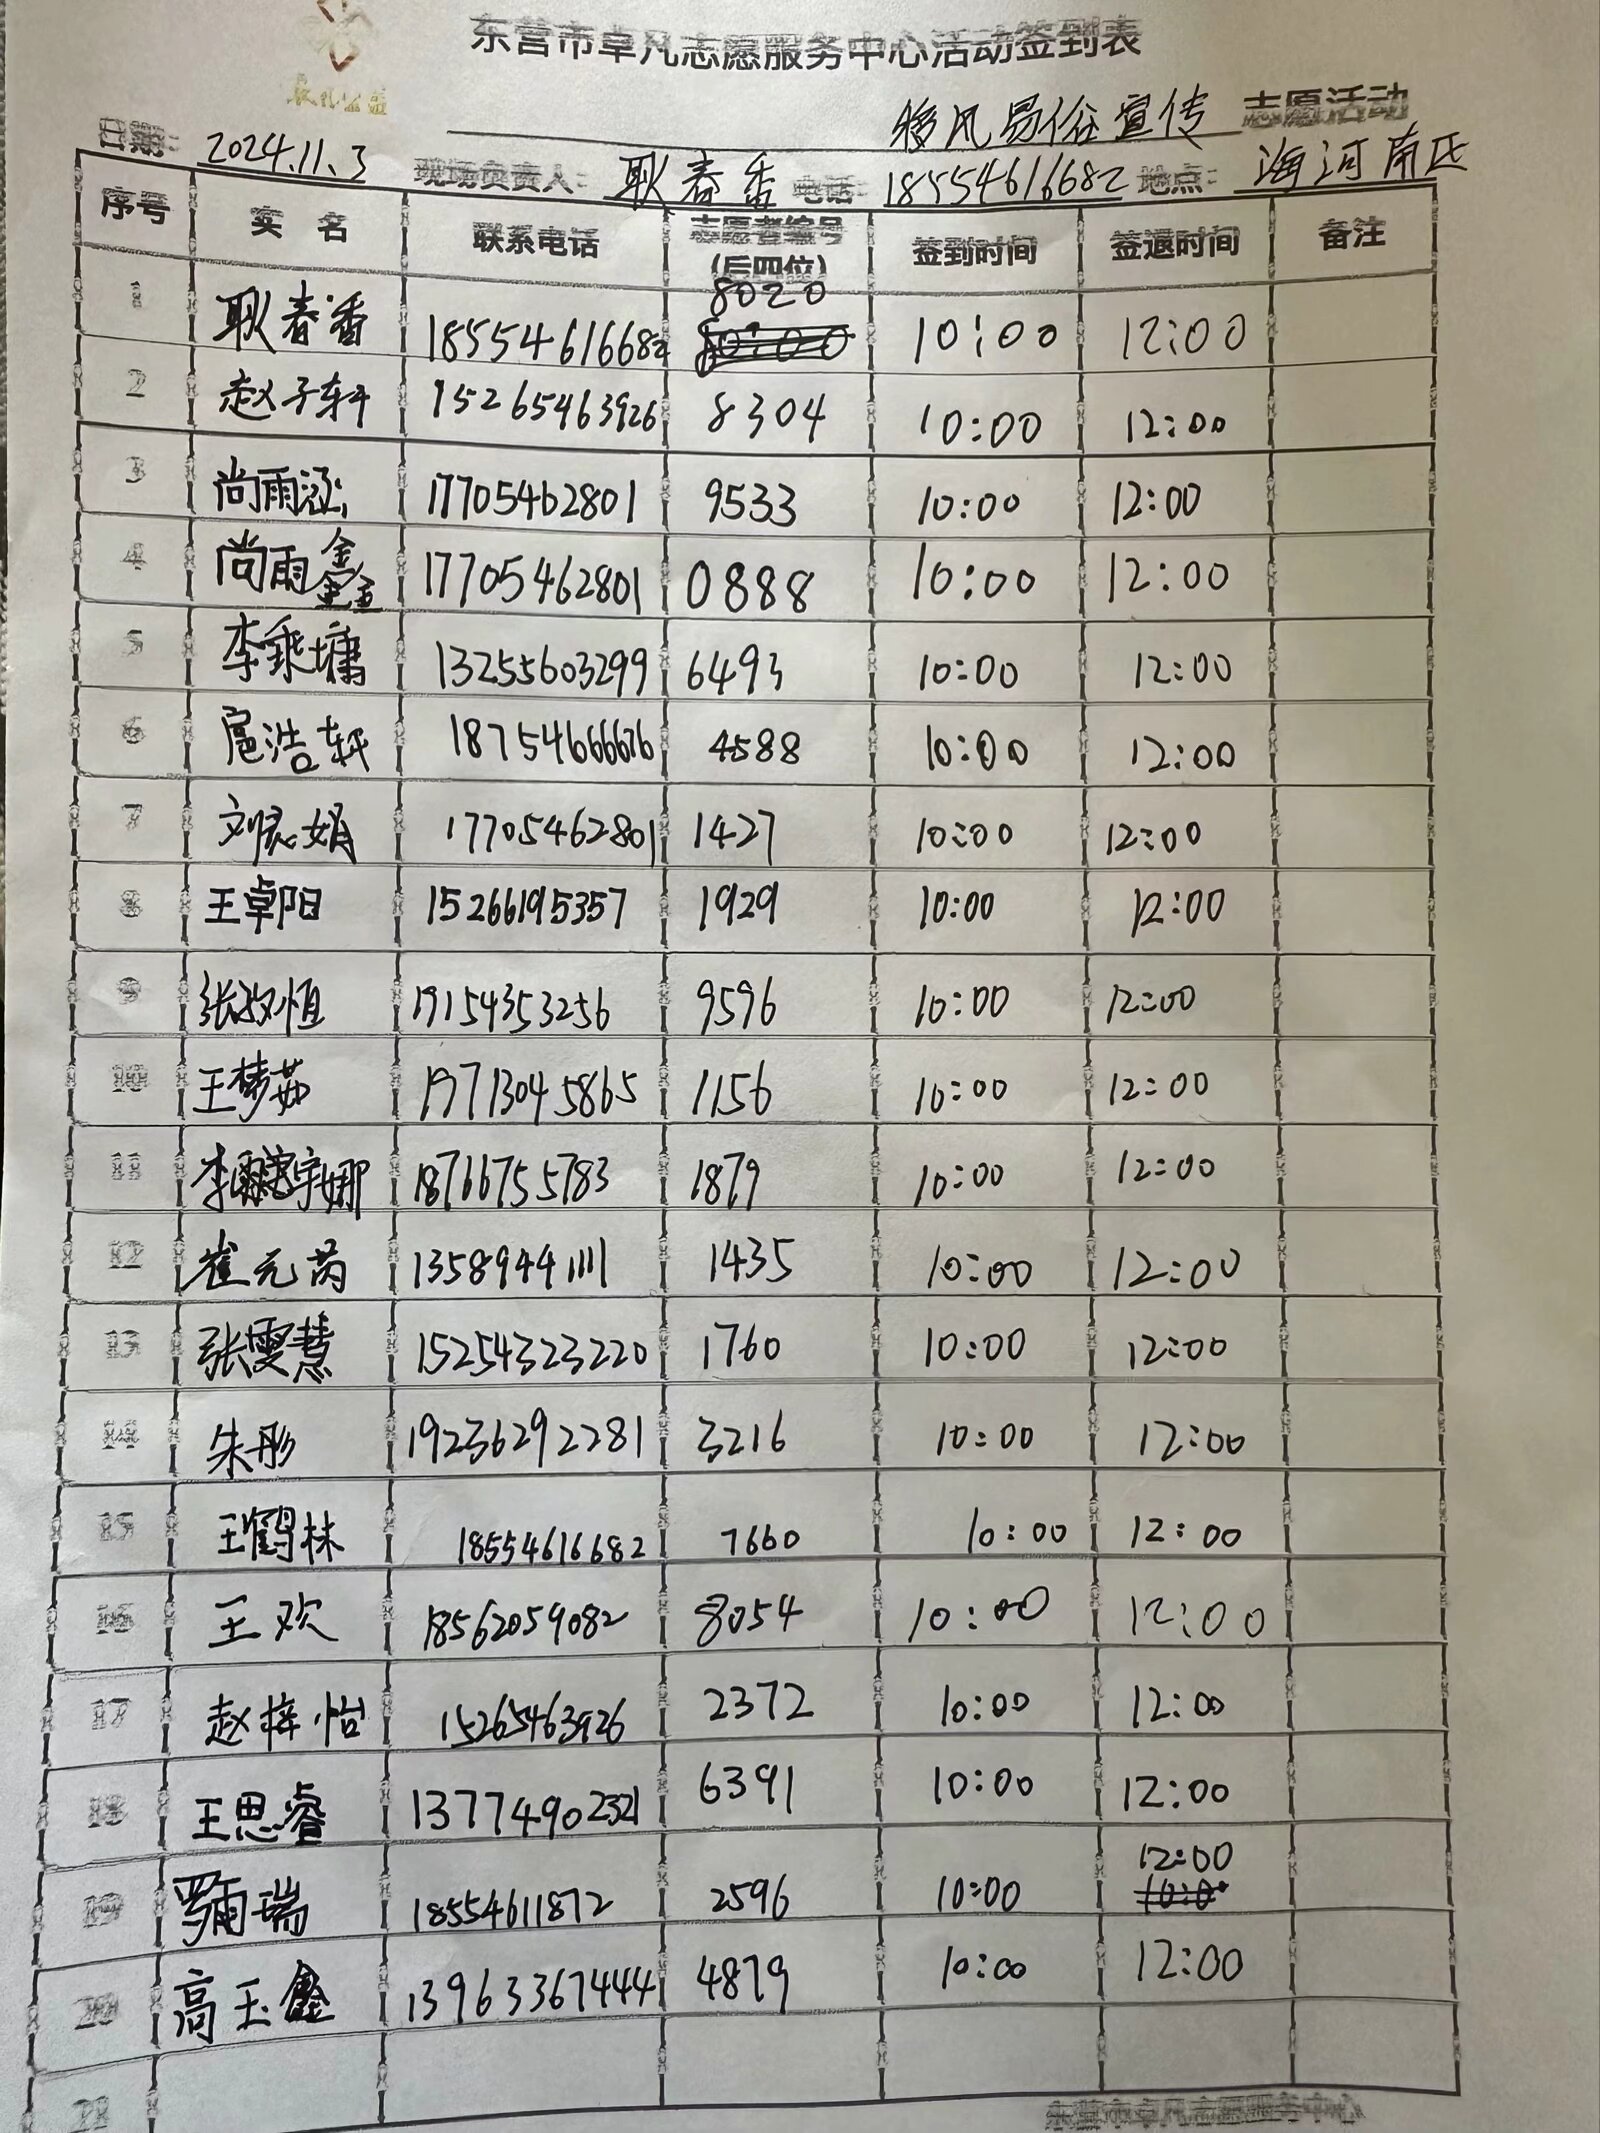 东营市卓凡志愿服务中心活动签到表
卓凡公益
移风易俗宣传 志愿活动
日期: 2024.11.3 现场负责人: 耿春香 电话: 18554616682 地点: 海河南区
序号 实名 联系电话 志愿者编号(后四位) 签到时间 签退时间 备注
1 耿春香 18554616682 8020 10:00 12:00
2 赵子轩 15265463926 8304 10:00 12:00
3 尚雨涵 17705462801 9533 10:00 12:00
4 尚雨鑫 17705462801 0888 10:00 12:00
5 李秉墉 13255603299 6493 10:00 12:00
6 扈浩轩 18754666676 4588 10:00 12:00
7 刘 娟 17705462801 1427 10:00 12:00
8 王朝阳 15266195357 1929 10:00 12:00
9 张 恒 19154353256 9596 10:00 12:00
10 王梦茹 19713045865 1156 10:00 12:00
11 李 宇娜 18766755783 1879 10:00 12:00
12 崔元芮 13589441111 1435 10:00 12:00
13 张雯慧 15254323220 1760 10:00 12:00
14 朱彤 19236292281 3216 10:00 12:00
15 王鹤林 18554616682 7660 10:00 12:00
16 王欢 18562059082 8054 10:00 12:00
17 赵梓怡 15265463926 2372 10:00 12:00
18 王思睿 13774902321 6391 10:00 12:00
19 罗雨瑞 18554611872 2596 10:00 12:00
20 高玉鑫 13963367444 4879 10:00 12:00
21
东营市卓凡志愿服务中心